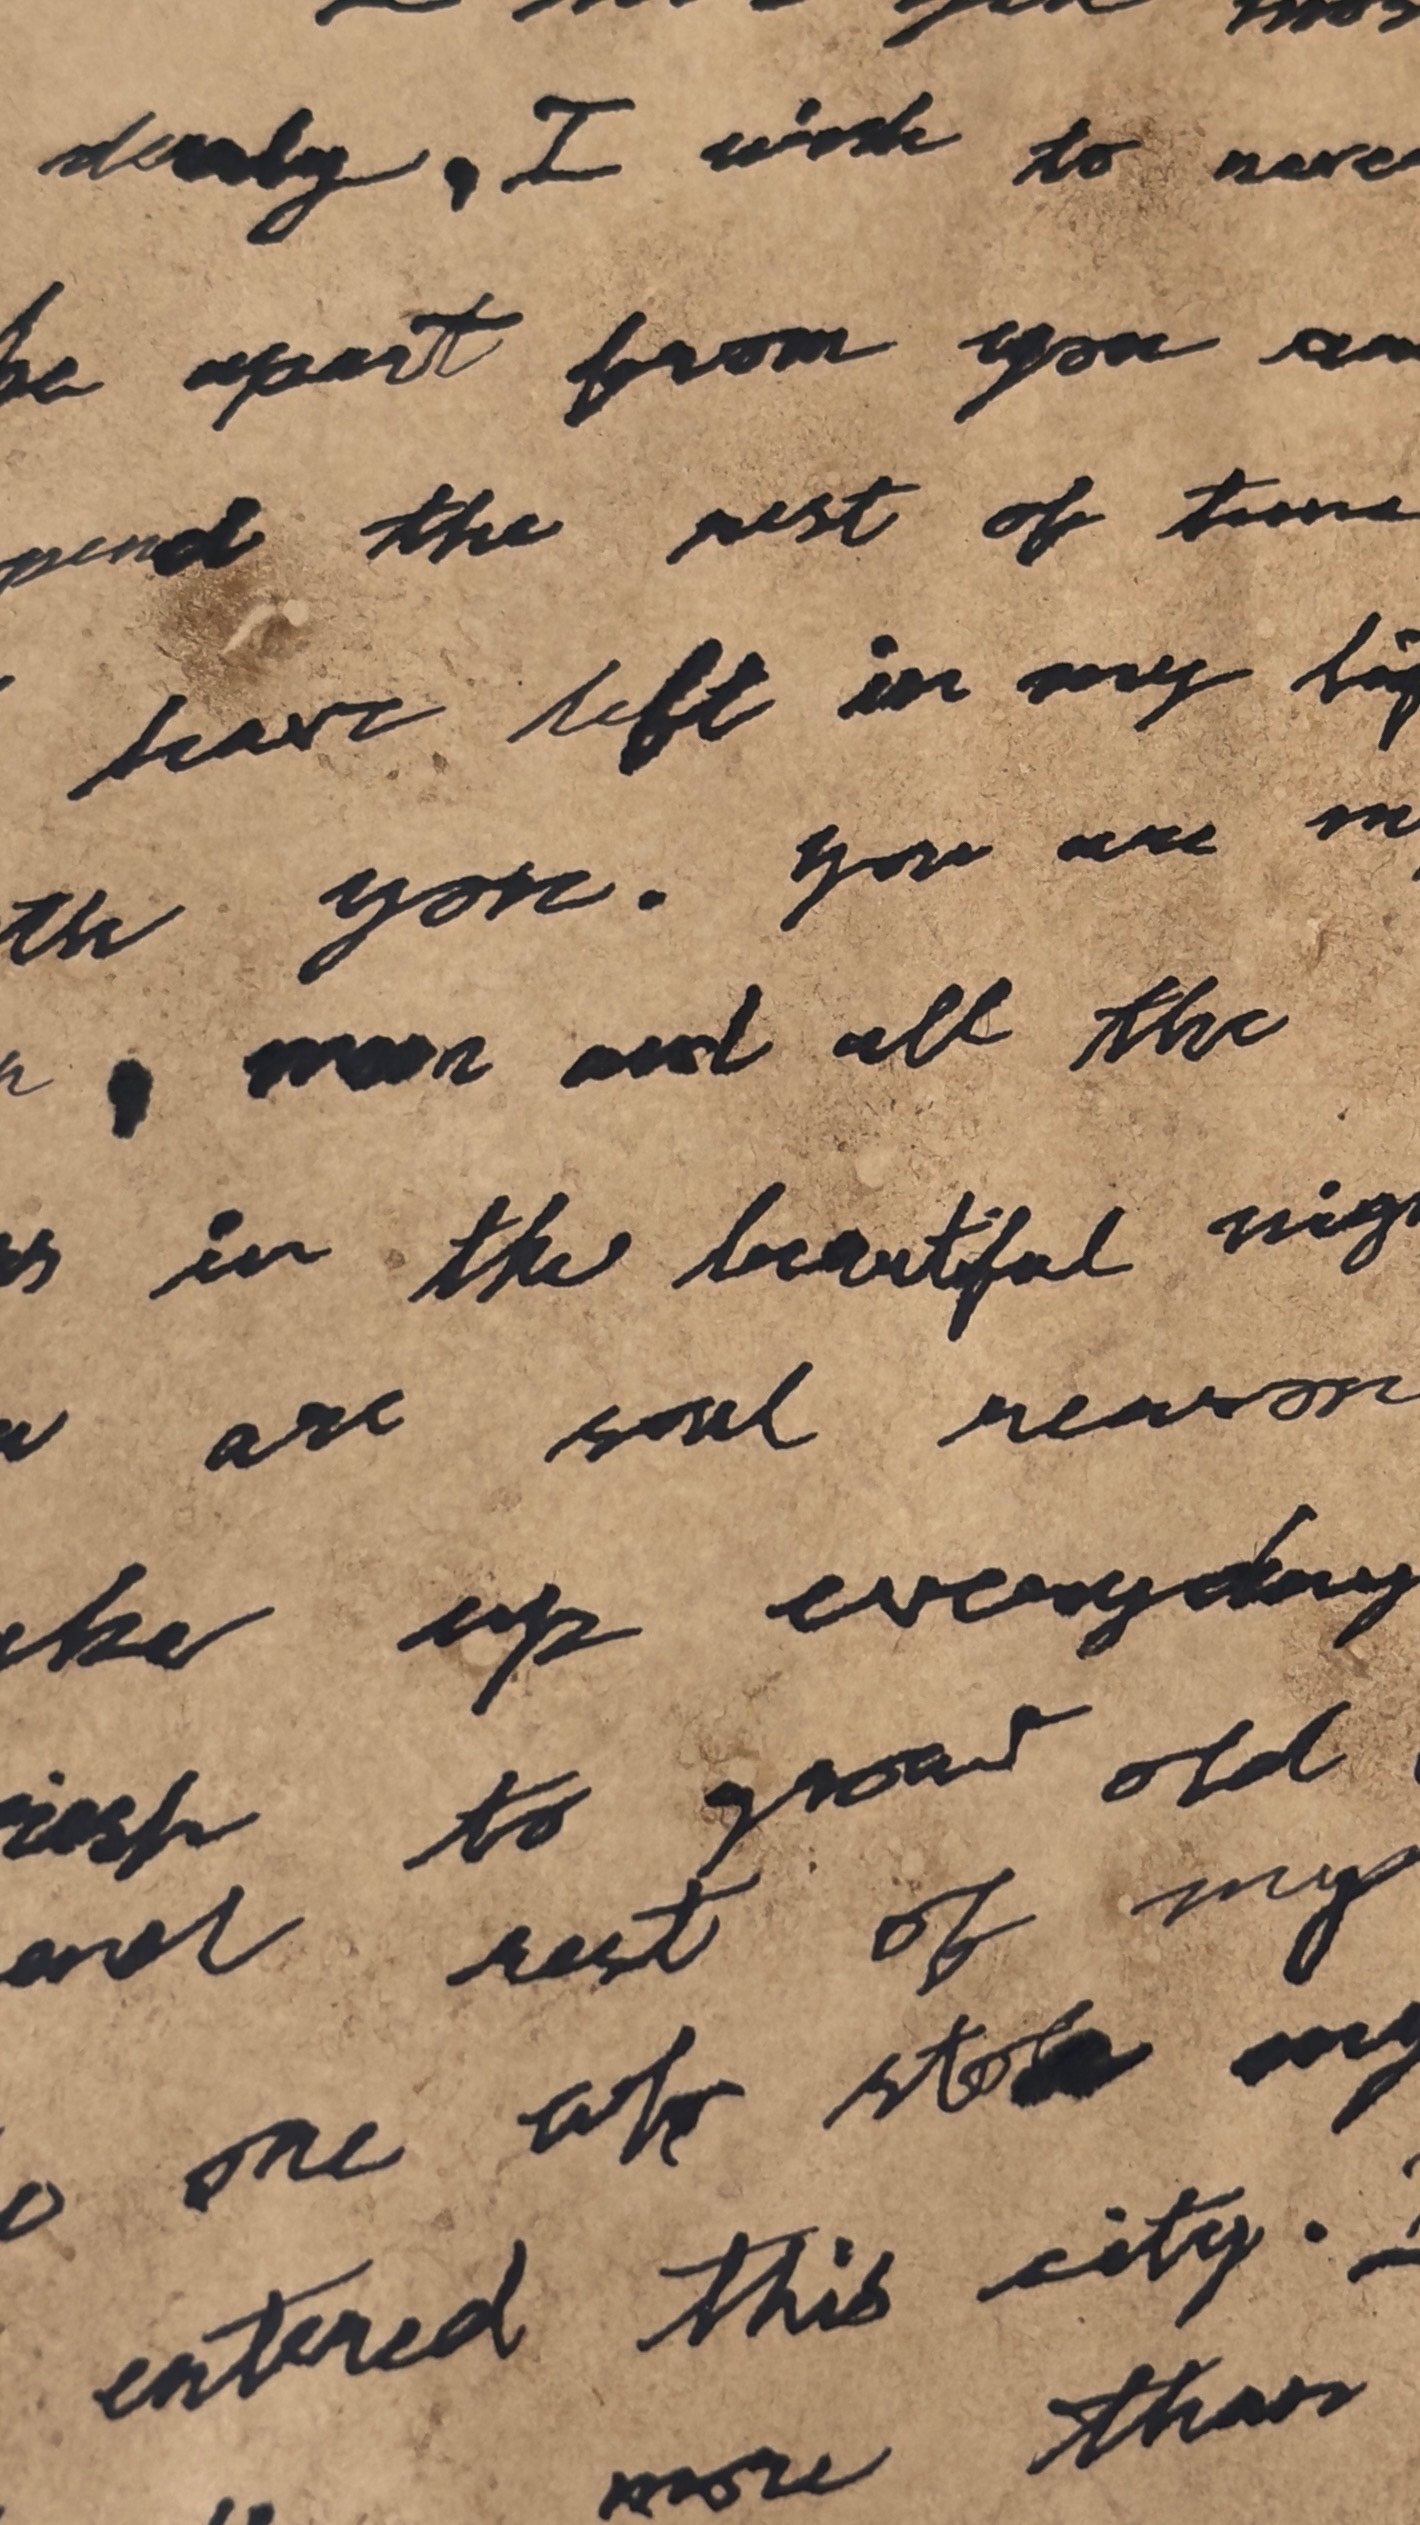 dearly, I wish to neve
be apart from you an
pend the rest of time
have left in my lif
ith you. you are my
, moon and all the
rs in the beautiful nigh
u are soul reason
ake up everyday
to grow old
and rest of my
one stole my
entered this city. I
more than